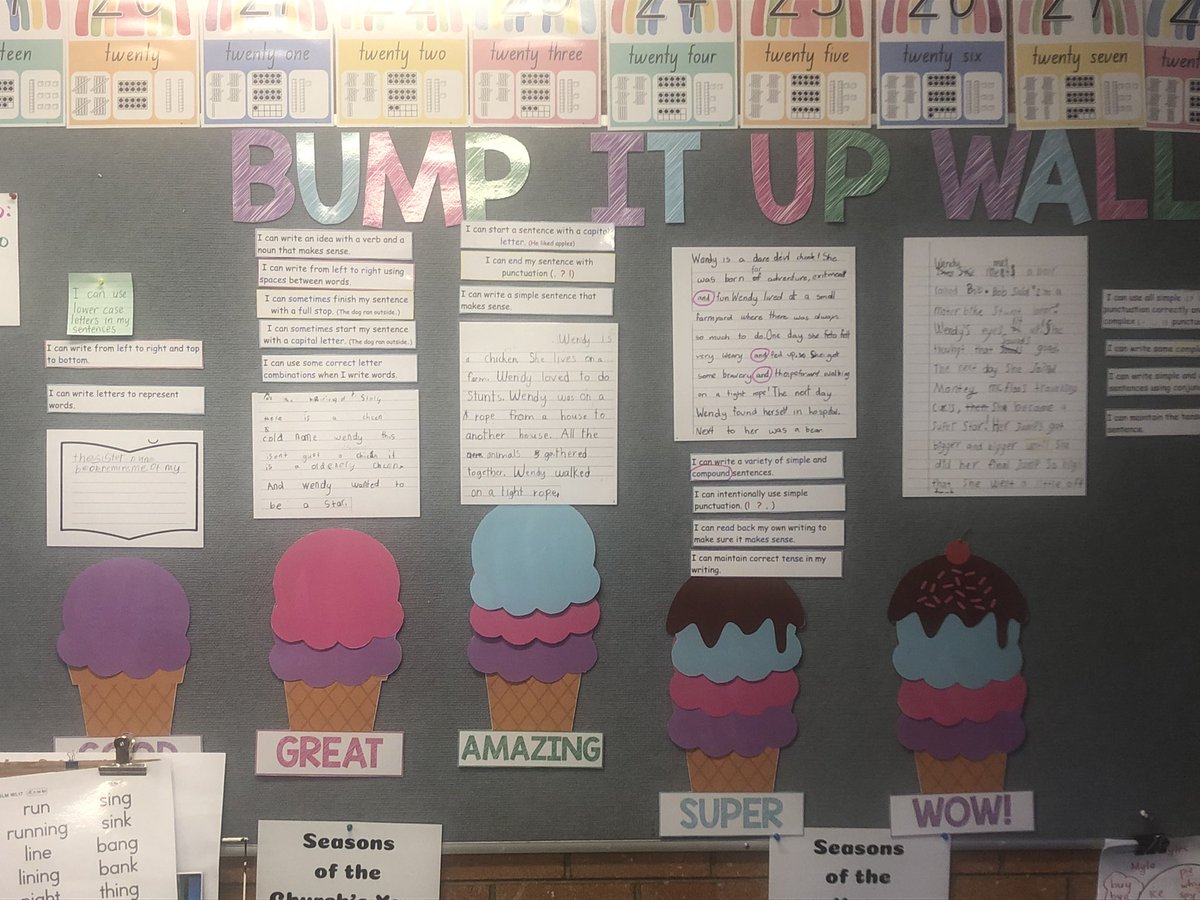 20
24
25
26
27
teen
twenty
twenty one
twenty two
twenty three
twenty four
twenty five
twenty six
twenty seven
twent
BUMP IT UP WALL
I can use
lower case
letters in my
sentences
I can write from left to right and top
to bottom.
I can write letters to represent
words.
GOOD
I can write an idea with a verb and a
noun that makes sense.
I can write from left to right using
spaces between words.
I can sometimes finish my sentence
with a full stop. (The dog ran outside.)
I can sometimes start my sentence
with a capital letter. (The dog ran outside.)
I can use some correct letter
combinations when I write words.
there is a
cold name. wendy this
isent gust a chicin it
is a
And wendy wanted to
be a star.
GREAT
I can start a sentence with a capital
letter. (He liked apples)
I can end my sentence with
punctuation (. ? !)
I can write a simple sentence that
makes sense.
Wendy is
a chicken She lives on a
farm. Wendy loved to do
Stunts. Wendy was on a
rope from a house to
another house. All the
animals gathered
together. Wendy walked
on a tight rope.
AMAZING
Wendy is a dare devil chook! She
was born for adventure, exitment
and fun. Wendy lived at a small
farmyard where there was always
so much to do. One day she felt
very weary and fed up. so She got
some bravery and walking
on a tight rope! The next day
Wendy found herself in hospital.
Next to her was a bear
I can write a variety of simple and
compound sentences.
I can intentionally use simple
punctuation. (! ? . )
I can read back my own writing to
make sure it makes sense.
I can maintain correct tense in my
writing.
SUPER
Wendy met a bair
called Bob. Bob Said "I'm a
motor bike Stunt
Wendy's eyes lit up! She
thought that Sounds good
The next day She Joined
Montey
she became a
super star! Her Jumps got
bigger and bigger until She
did her final Jump So high
that She went a little off
WOW!
I can use all simple
punctuation correctly an
complex
I can write some com
I can write simple and
sentences using conju
I can maintain the ten
sentence.
run
running
line
lining
sing
sink
bang
bank
thing
Seasons
of the
Church's
Seasons
of the
Myla
buy